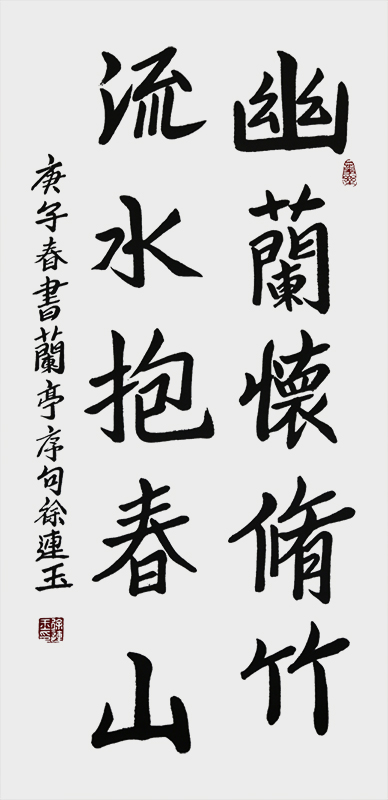 幽蘭懷脩竹
流水抱春山
庚子春書蘭亭序句徐連玉